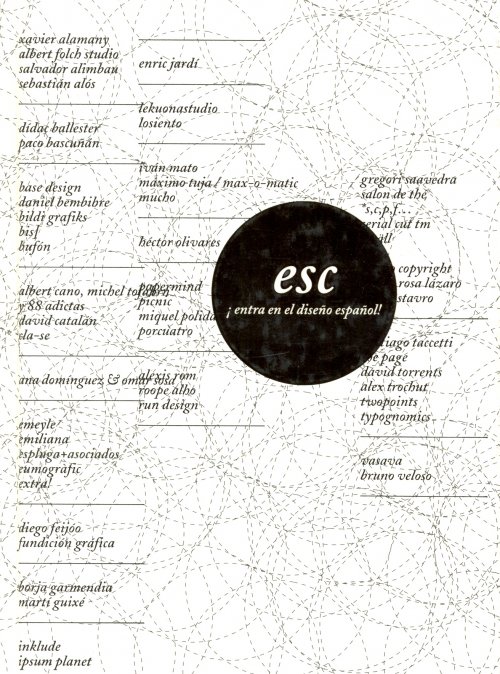 xavier alamany
albert folch studio
salvador alimbau
sebastián alós
dídac ballester
paco bascuñán
base design
daniel bembibre
bildi grafiks
bis]
bufón
albert cano, michel tofahrn
y 88 adictas
david catalán
cla-se
ana domínguez & omar sosa
emeyle
emiliana
espluga+asociados
eumogràfic
extra!
diego feijóo
fundición gráfica
borja garmendia
martí guixé
inklude
ipsum planet
enric jardí
lekuonastudio
losiento
iván mato
máximo tuja / max-o-matic
mucho
héctor olivares
papermind
picnic
miquel polida
porcuatro
alexis rom
roope alho
run design
esc
¡ entra en el diseño español!
gregori saavedra
salon de thé
*s,c,p,f...
serial cut tm
copyright
rosa lázaro
stavro
taccetti
page
david torrents
alex trochut
twopoints
typognomics
vasava
bruno veloso